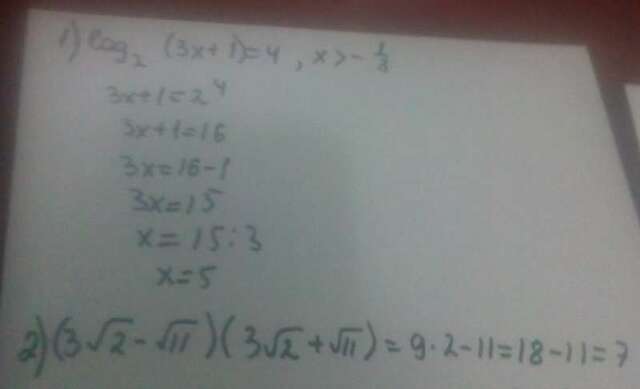 1) log₂ (3x+1)=4 , x>-1/3
3x+1=2⁴
3x+1=16
3x=16-1
3x=15
x=15:3
x=5
2) (3√2-√11)(3√2+√11)=9·2-11=18-11=7